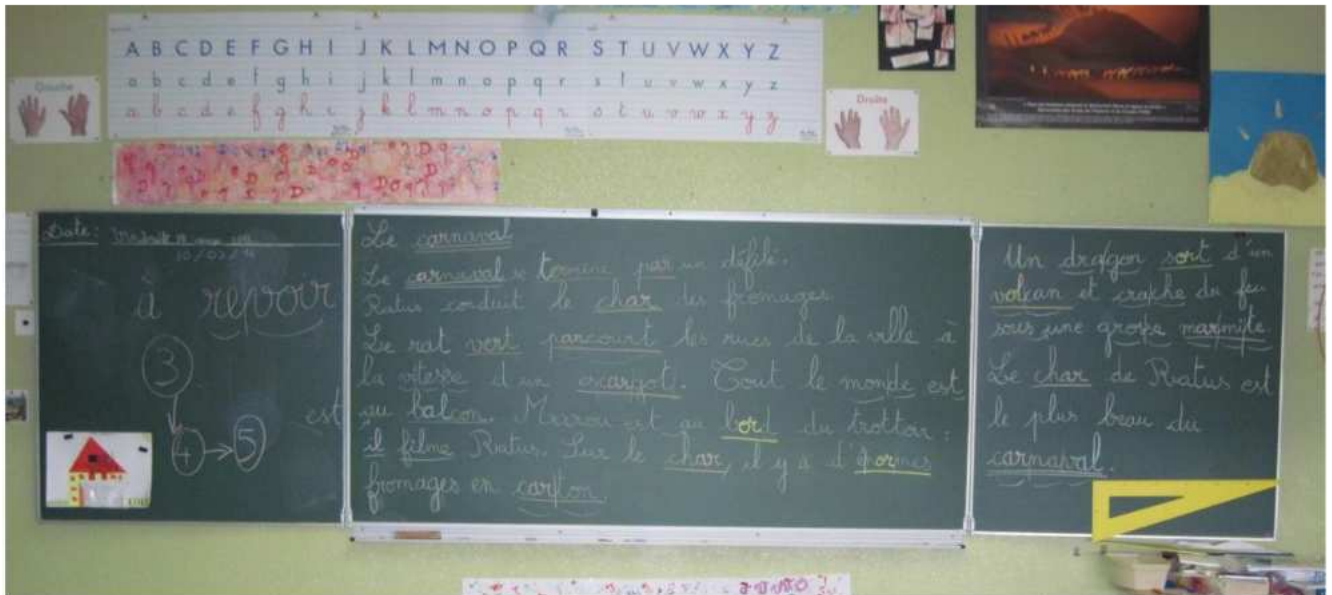 A B C D E F G H I J K L M N O P Q R S T U V W X Y Z
a b c d e f g h i j k l m n o p q r s t u v w x y z
a b c d e f g h i j k l m n o p q r s t u v w x y z
Gauche
Droite
Date:
à revoir
3
4 → 5
est
Le carnaval
Le carnaval se termine par un défilé.
Ratus conduit le char des fromages
Le rat vert parcourt les rues de la ville à
la vitesse d'un escargot. Tout le monde est
au balcon. Marou est au bord du trottoir :
il filme Ratus. Sur le char, il y a d'énormes
fromages en carton.
Un dragon sort d'un
volcan et crache du feu
sous une grosse marmite.
Le char de Ratus est
le plus beau du
carnaval.